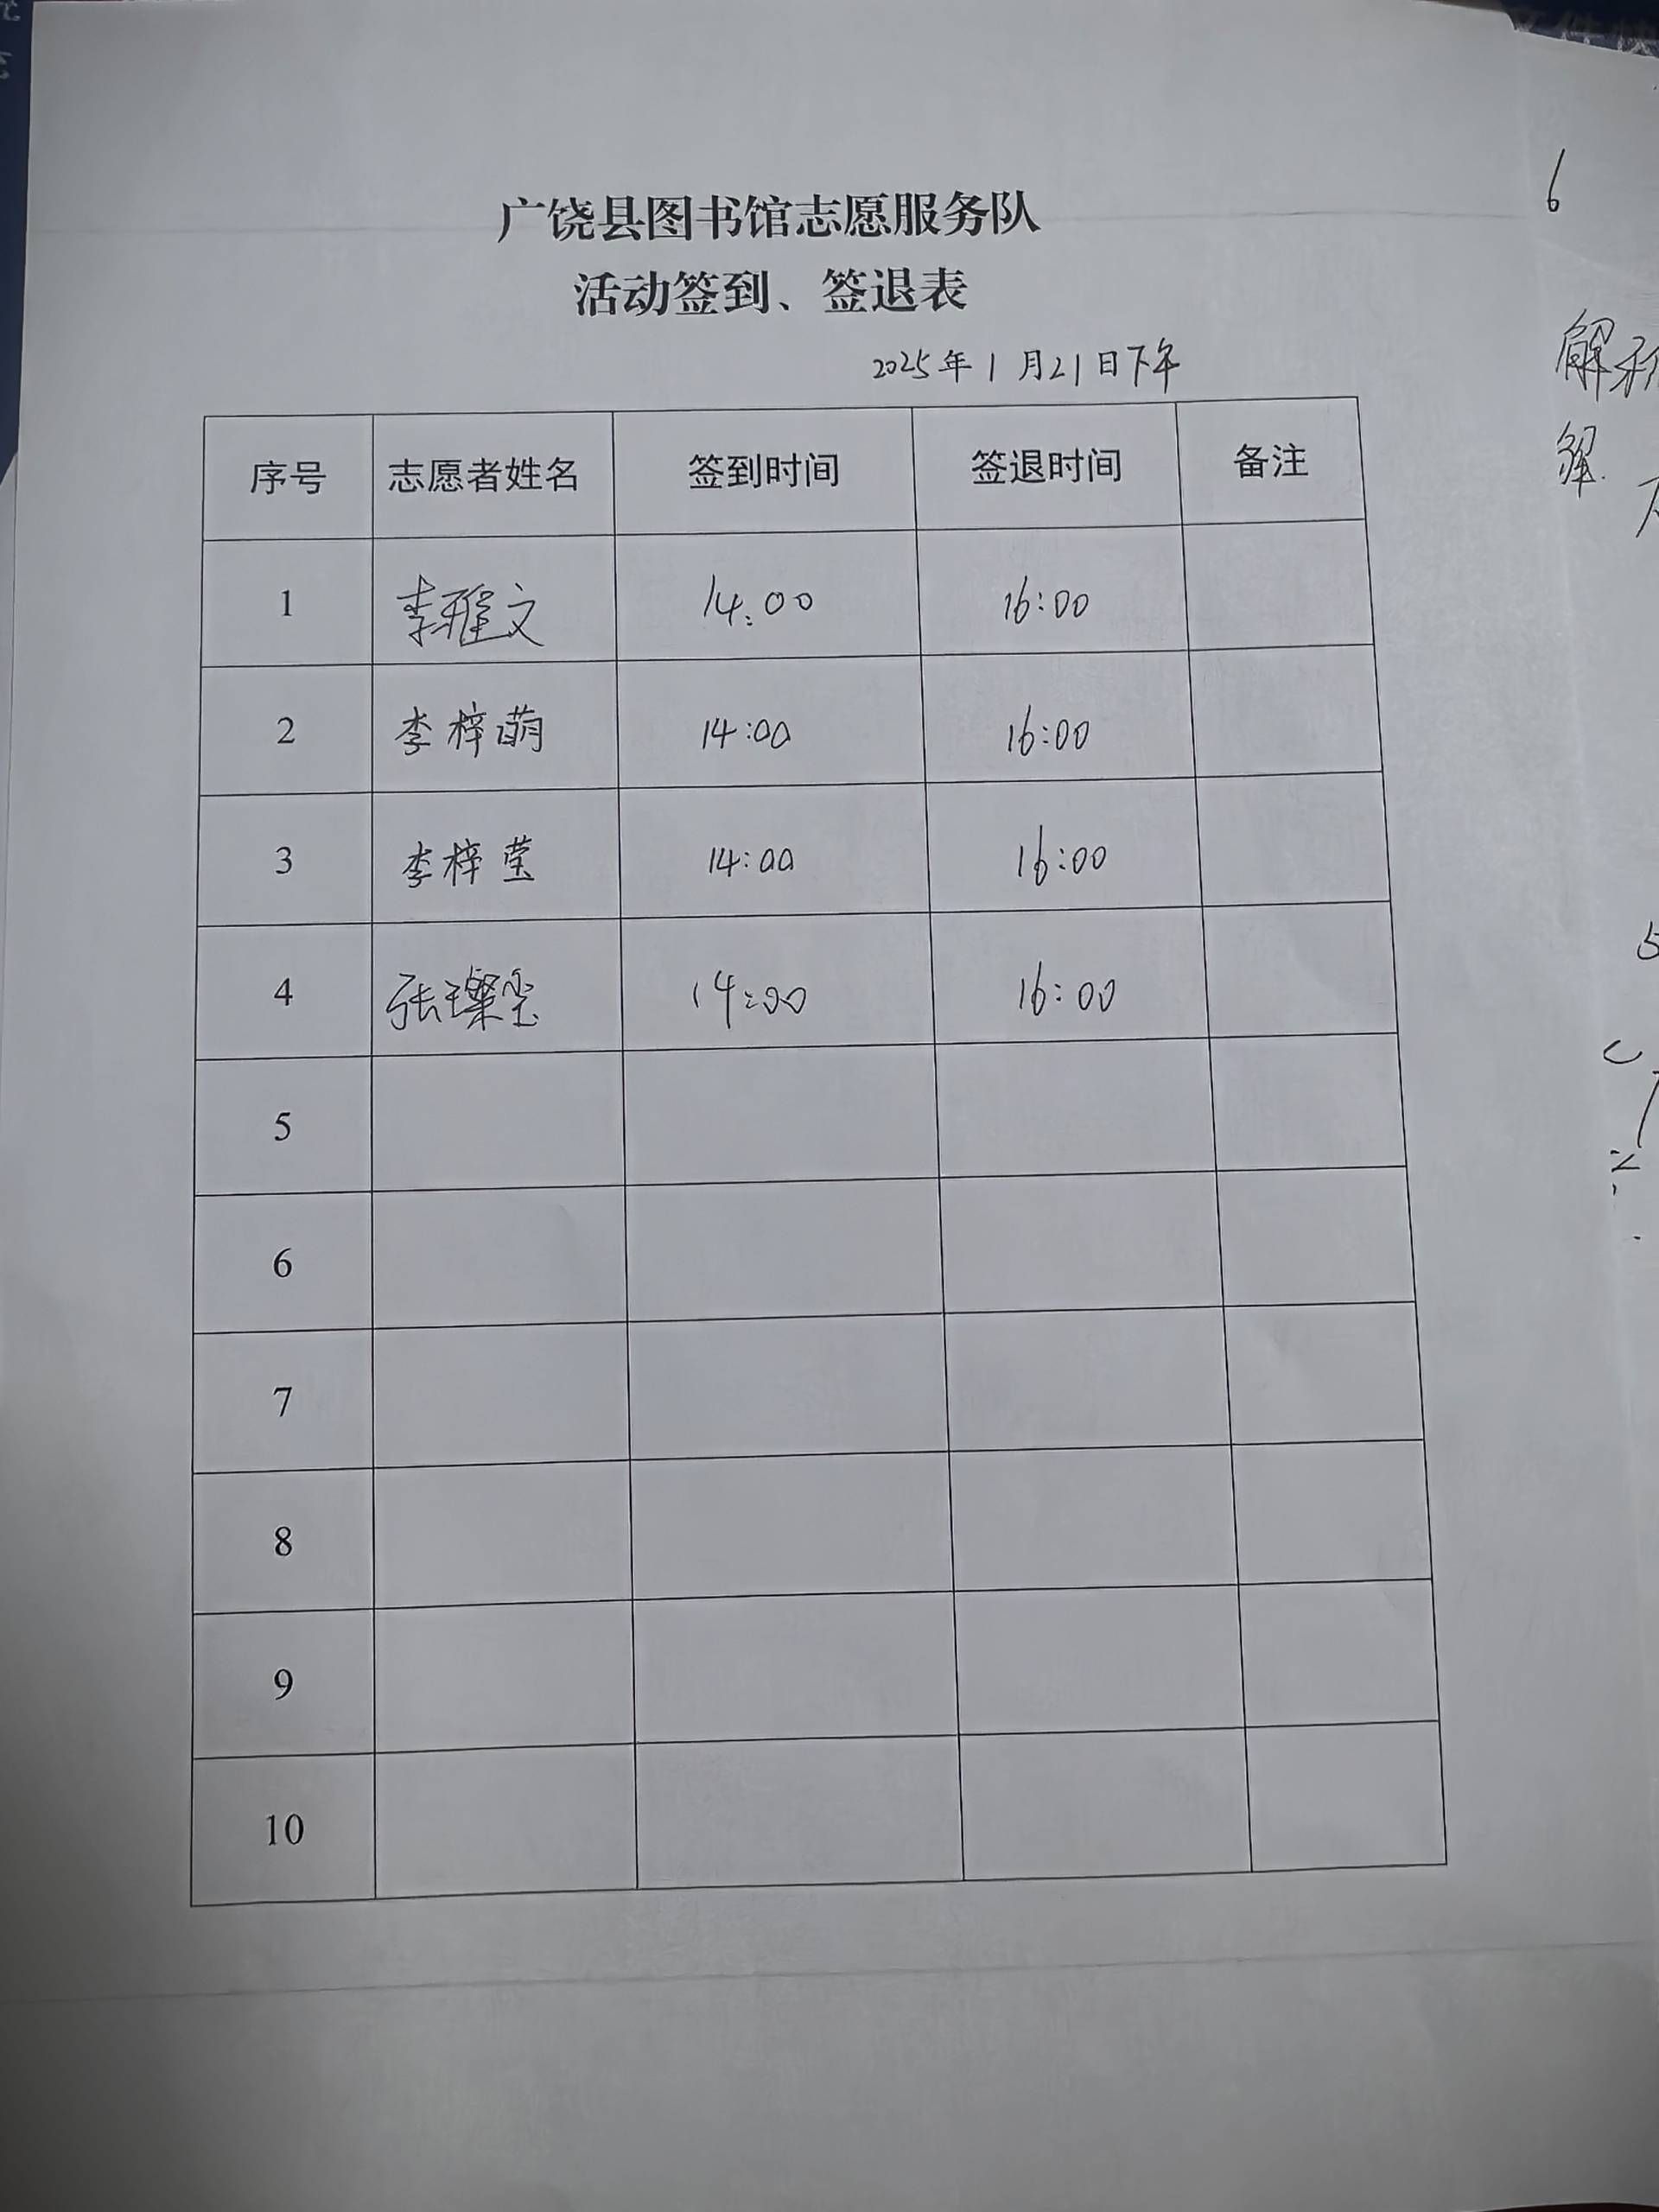 广饶县图书馆志愿服务队
活动签到、签退表
2025年1月21日下午
序号 志愿者姓名 签到时间 签退时间 备注
1 李雅文 14:00 16:00
2 李梓萌 14:00 16:00
3 李梓莹 14:00 16:00
4 张璨莹 14:00 16:00
5
6
7
8
9
10
6
解